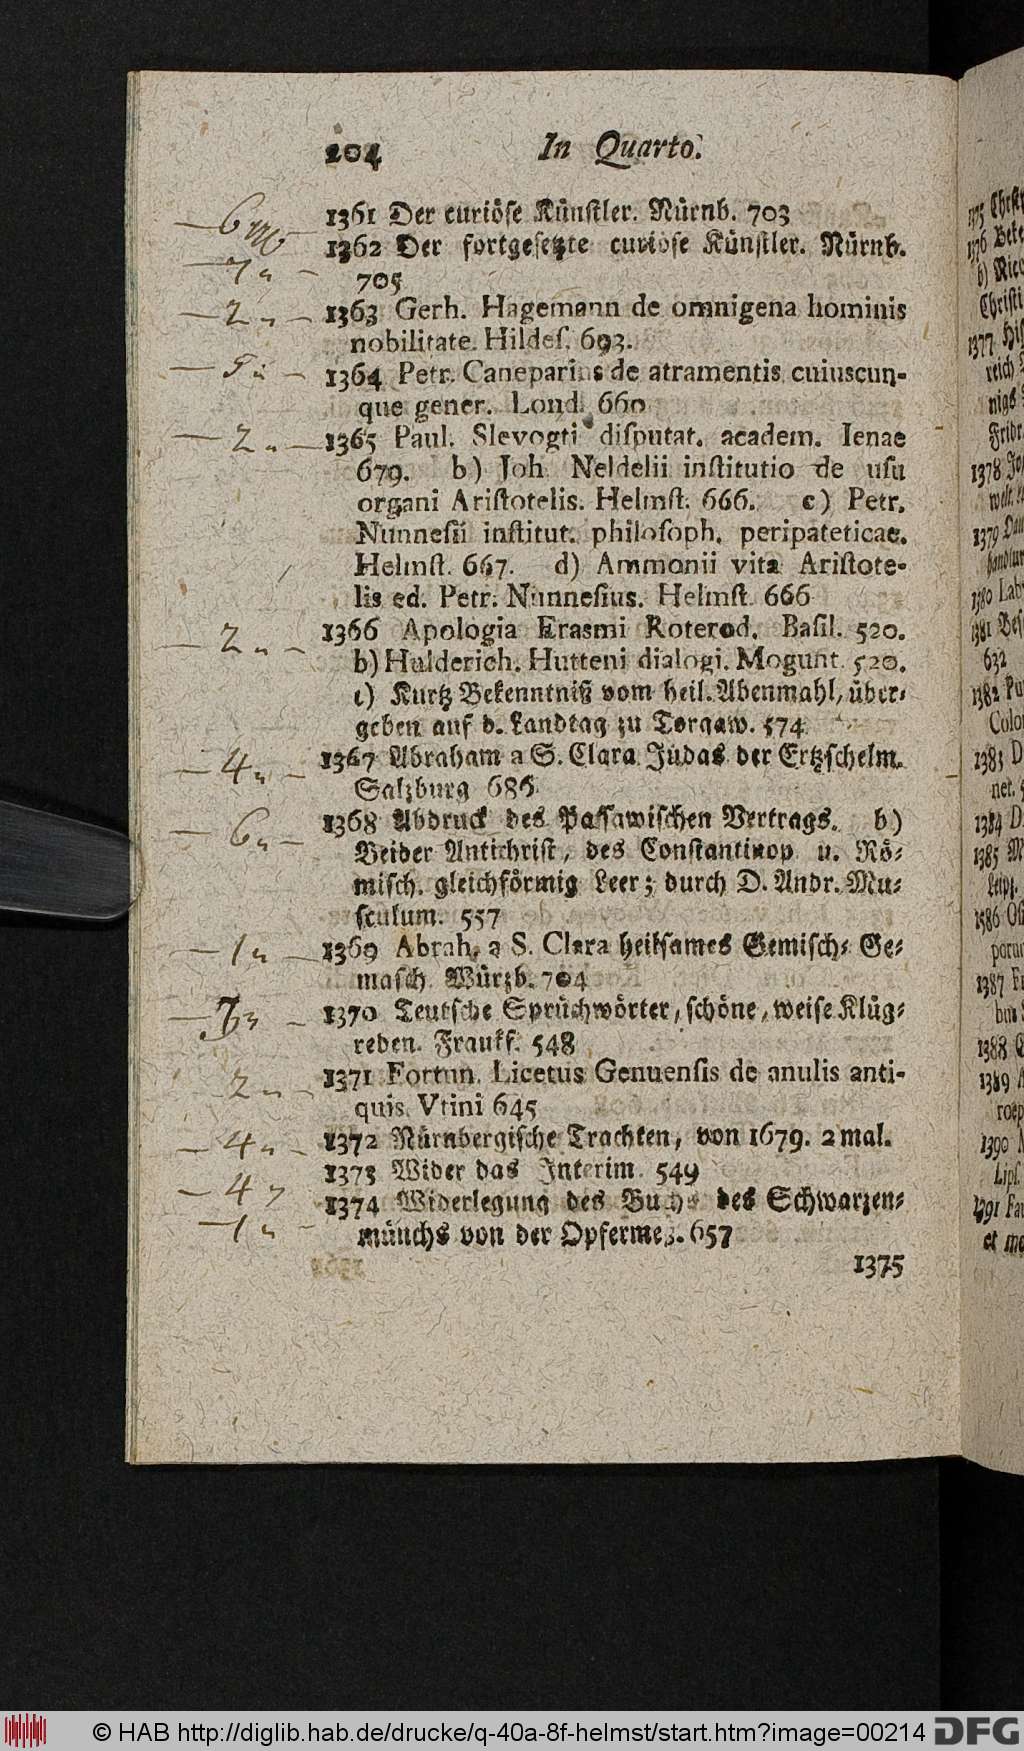 204 In Quarto.
1361 Der curiöse Künstler. Nürnb. 703
1362 Der fortgesetzte curiose Künstler. Nürnb.
705
1363 Gerh. Hagemann de omnigena hominis
nobilitate. Hildeſ. 693.
1364 Petr. Caneparius de atramentis cuiuscun-
que gener. Lond. 660
1365 Paul. Slevogti diſputat. academ. Ienae
679. b) Joh. Neldelii inſtitutio de uſu
organi Ariſtotelis. Helmſt. 666. c) Petr.
Nunneſii inſtitut. philoſoph. peripateticae.
Helmſt. 667. d) Ammonii vita Ariſtote-
lis ed. Petr. Nunneſius. Helmſt. 666
1366 Apologia Erasmi Roterod. Baſil. 520.
b) Hulderich. Hutteni dialogi. Mogunt. 520.
c) Kurtz Bekenntniß vom heil. Abenmahl, über-
geben auf d. Landtag zu Torgaw. 574
1367 Abraham a S. Clara Judas der Ertzschelm.
Salzburg 686
1368 Abdruck des Passawischen Vertrags. b)
Beider Antichrist, des Constantinop. u. Rö-
misch. gleichförmig Leer; durch D. Andr. Mu-
sculum. 557
1369 Abrah. a S. Clara heilsames Gemisch- Ge-
masch. Würzb. 704
1370 Teutsche Sprüchwörter, schöne, weise Klüg-
reden. Frankf. 548
1371 Fortun. Licetus Genuenſis de anulis anti-
quis. Vtini 645
1372 Nürnbergische Trachten, von 1679. 2 mal.
1373 Wider das Interim. 549
1374 Widerlegung des Buchs des Schwarzen-
münchs von der Opfermeß. 657
1375
© HAB http://diglib.hab.de/drucke/q-40a-8f-helmst/start.htm?image=00214
DFG